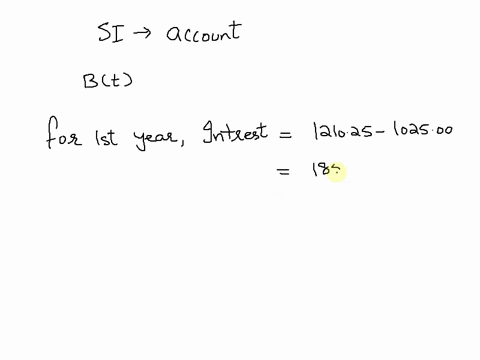 SI → account
B(t)
for 1st year, Intrest = 1210.25 - 1025.00
= 185